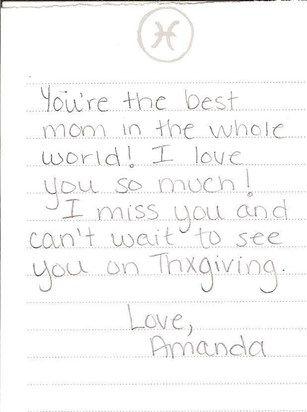 You're the best
mom in the whole
world! I love
you so much!
I miss you and
can't wait to see
you on Thxgiving.
Love,
Amanda